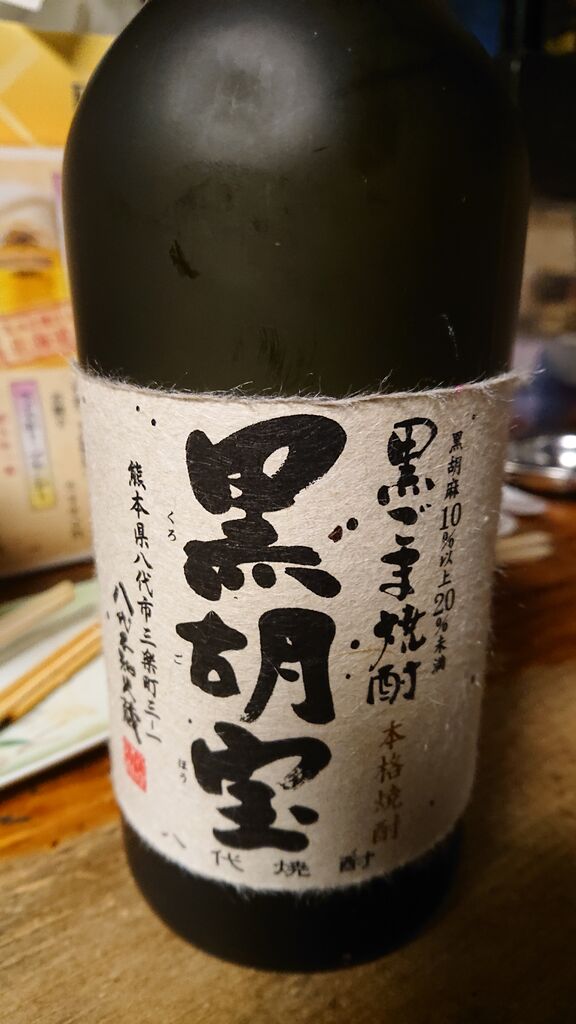 黒胡麻10%以上20%未満
黒ごま焼酎
本格焼酎
黒胡宝
くろ
ご
ほう
熊本県八代市三楽町三-一
八代不知火蔵
八代焼酎